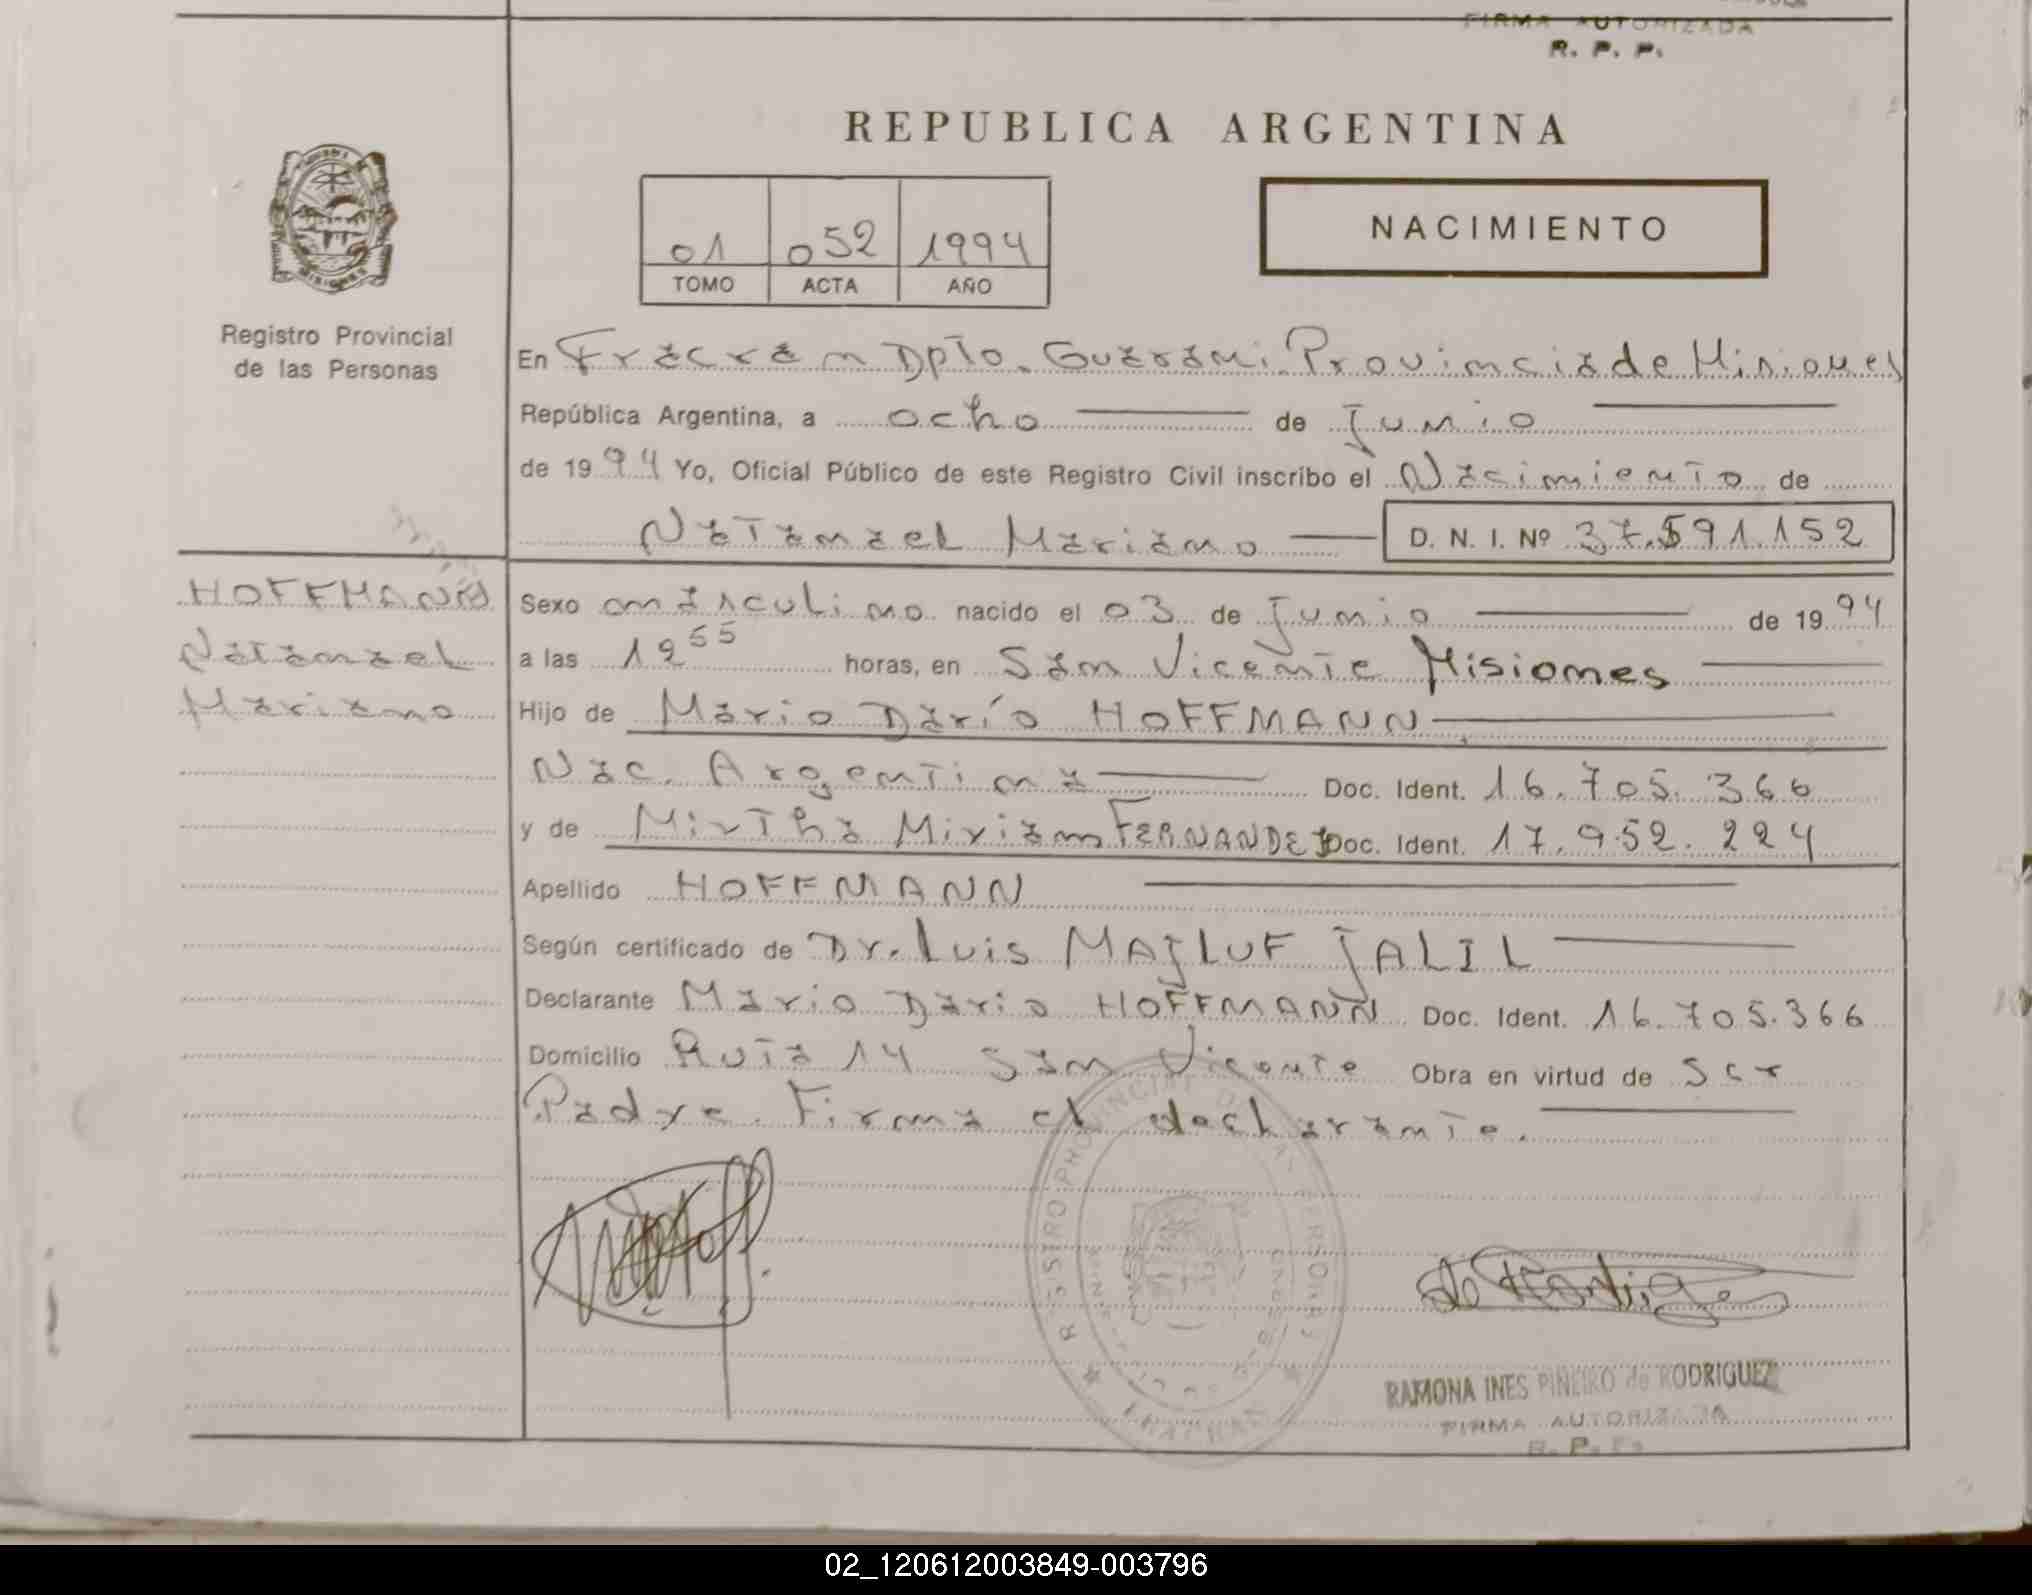 FIRMA AUTORIZADA
R. P. P.
REPUBLICA ARGENTINA
01 052 1994
TOMO ACTA AÑO
NACIMIENTO
Registro Provincial
de las Personas
En Fracran Dpto. Guarani. Provincia de Misiones
República Argentina, a ocho de Junio
de 1994 Yo, Oficial Público de este Registro Civil inscribo el Nacimiento de
Natanael Mariano D. N. I. Nº 37.591.152
HOFFMANN
Natanael
Mariano
Sexo masculino nacido el 03 de Junio de 1994
a las 12 55 horas, en San Vicente Misiones
Hijo de Mario Darío HOFFMANN
Nac. Argentina Doc. Ident. 16.705.366
y de Mirtha Miriam FERNANDEZ Doc. Ident. 17.952.224
Apellido HOFFMANN
Según certificado de Dr. Luis MAJLUF JALIL
Declarante Mario Dario HOFFMANN Doc. Ident. 16.705.366
Domicilio Ruta 14 San Vicente Obra en virtud de ser
Padre. Firma el declarante.
REGISTRO PROVINCIAL DE LAS PERSONAS
FRACRAN
RAMONA INES PIÑEIRO de RODRIGUEZ
FIRMA AUTORIZADA
R. P. P.
02_120612003849-003796